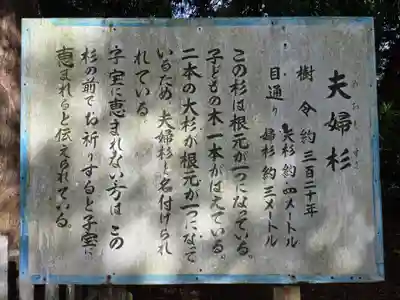 夫婦杉
めおとすぎ
樹令 約三百二十年
夫杉 約四メートル
目通り
婦杉 約三メートル
この杉は根元が一つになっている。
子どもの木一本がはえている。
二本の大杉が根元が一つになって
いるため、夫婦杉と名付けられ
れている。
子宝に恵まれない方は この
杉の前でお祈りすると子宝に
恵まれると伝えられている。